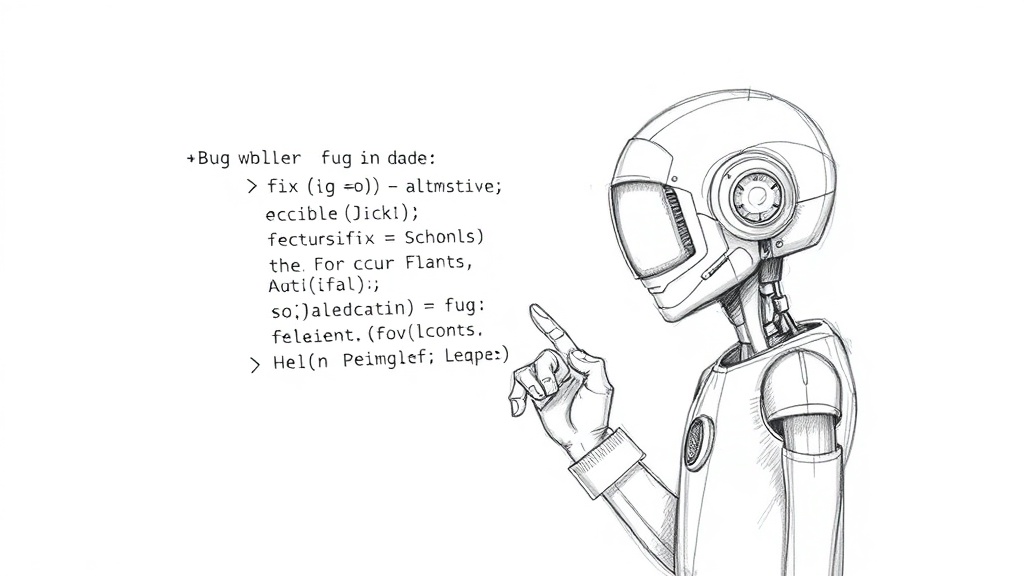 +Bug wbller fug in dade:
> fix (ig =o)) - altmstive;
eccible (Jickl);
fectursifix = Schonls)
the. For ccur Flants,
Auti(ifal):;
so;)aledcatin) = fug:
feleient. (fov(lconts.
> Hel(n Peimglef; Leape:)